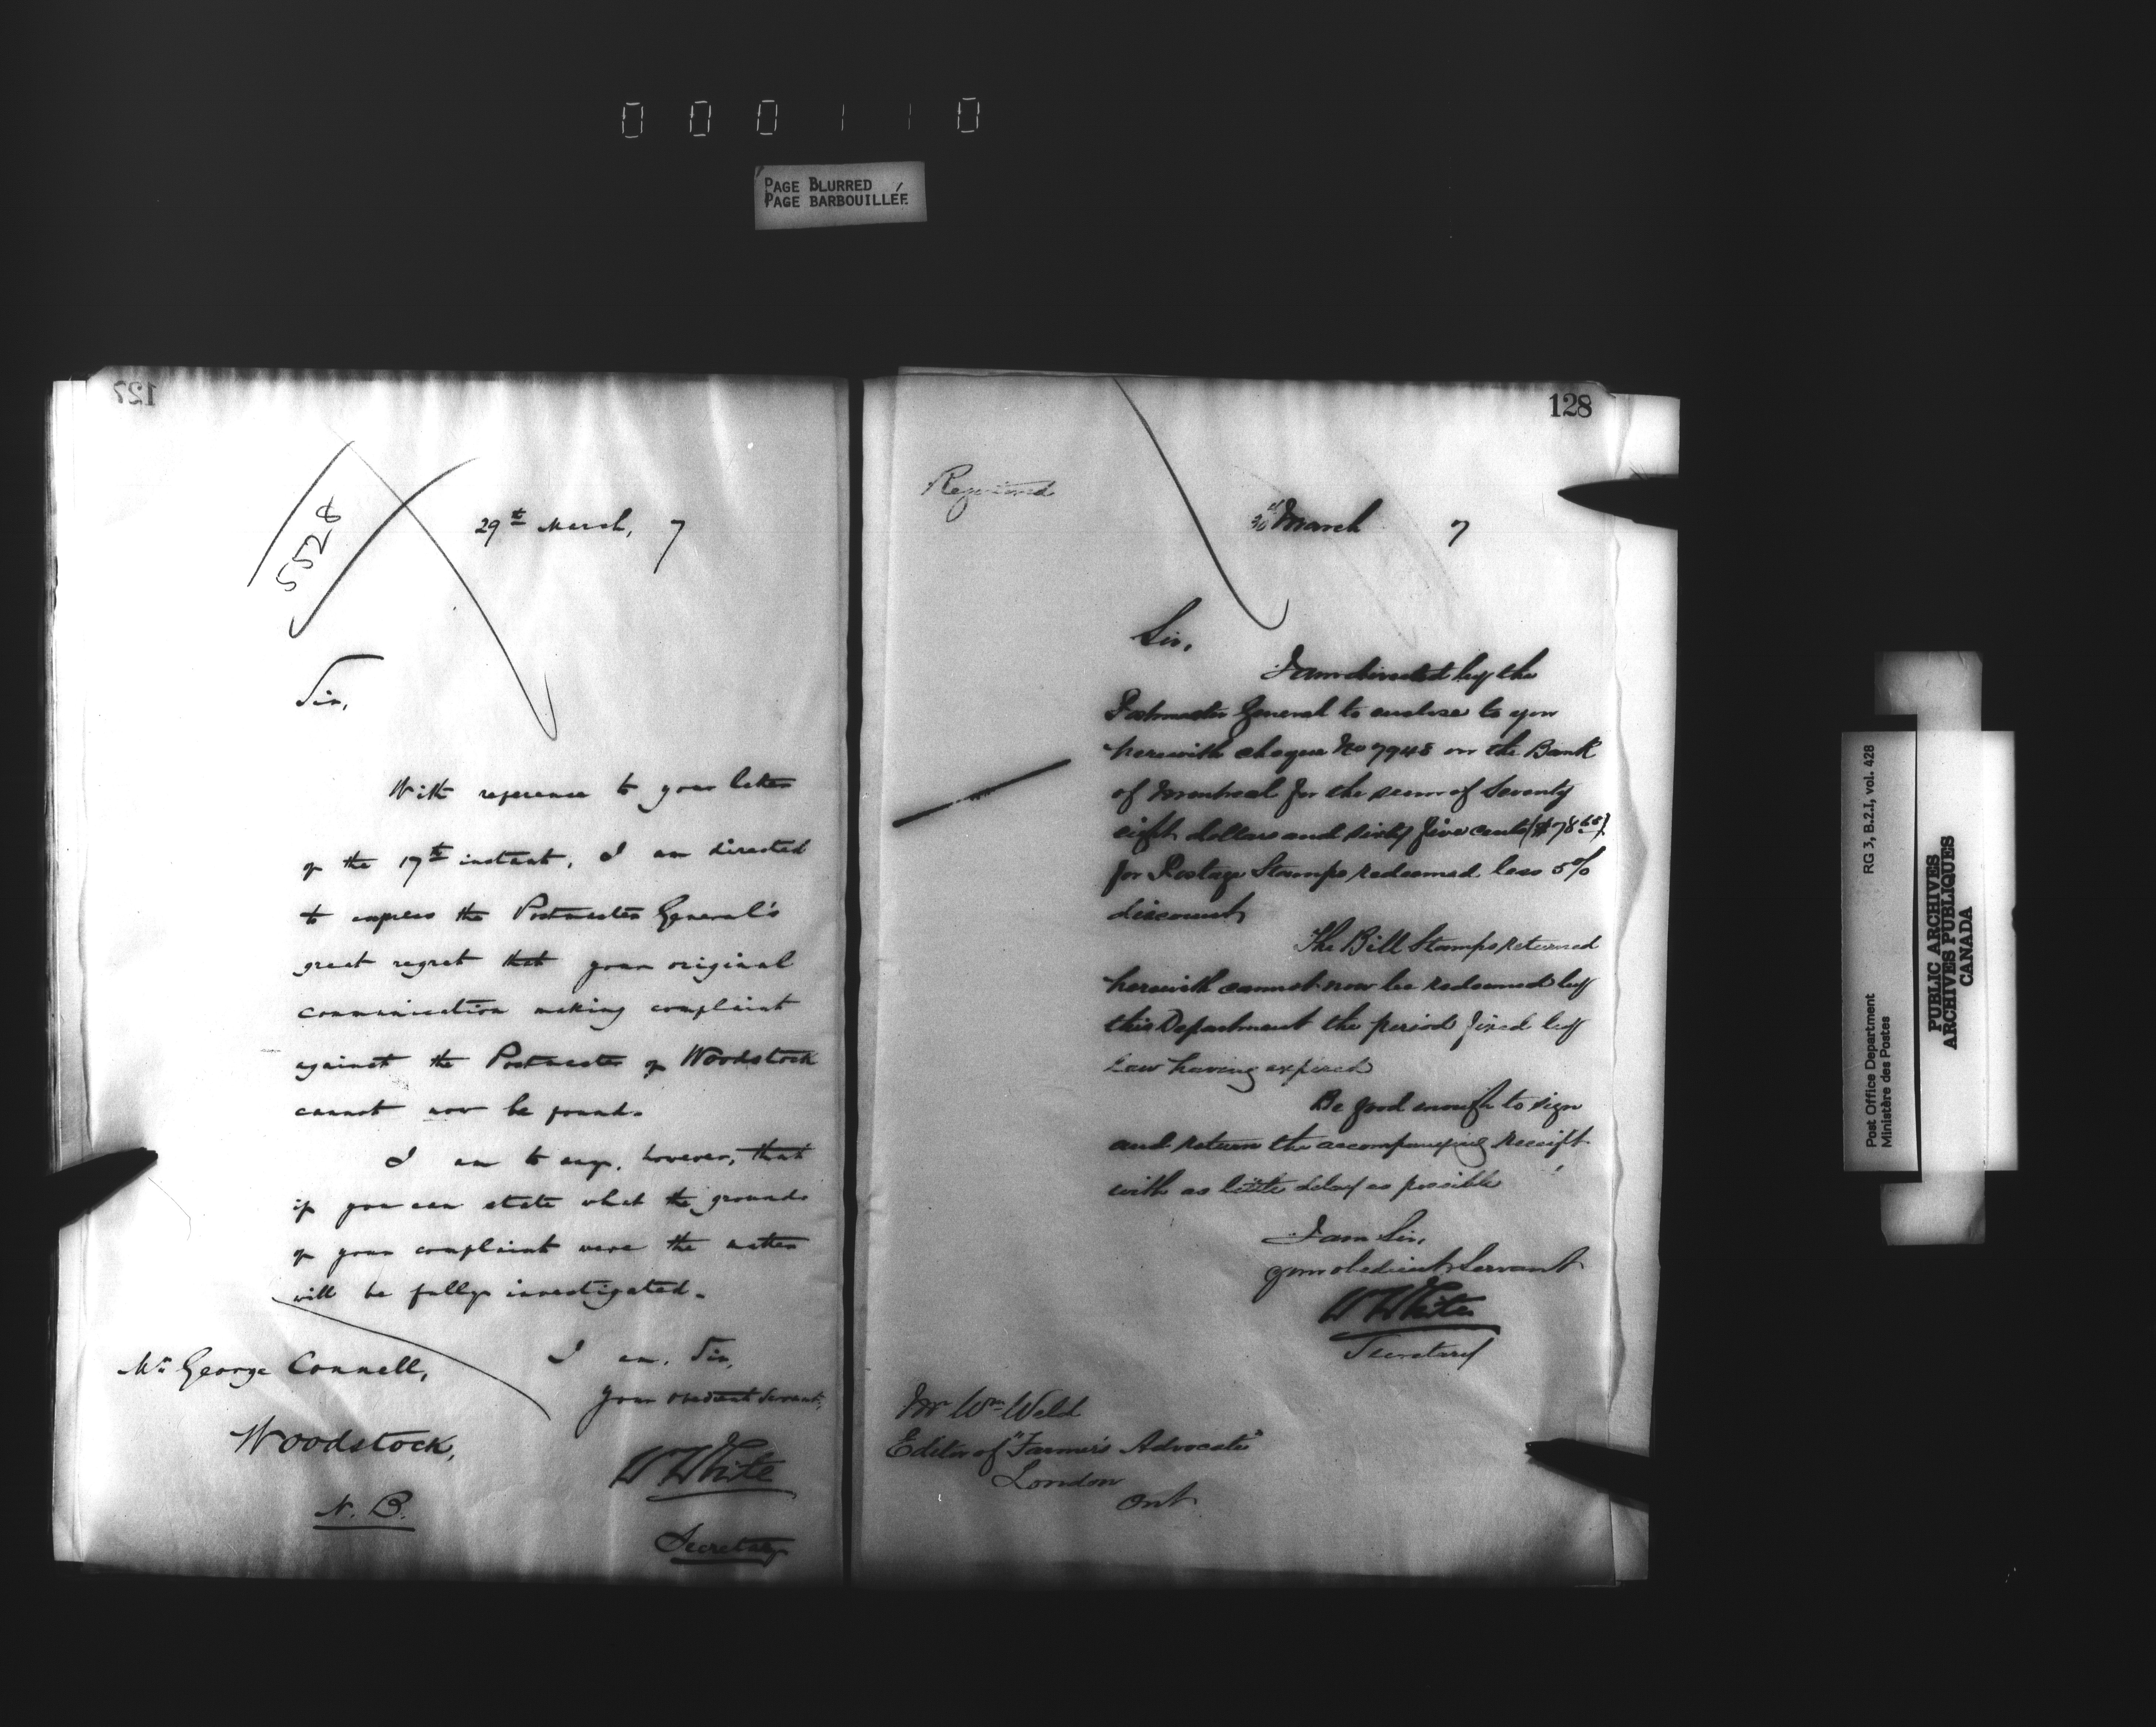 000110
PAGE BLURRED
PAGE BARBOUILLÉE
127
5528
29th March, 7
Sir,
With reference to your letter
of the 17th instant, I am directed
to express the Postmaster General's
great regret that your original
communication making complaint
against the Postmaster of Woodstock
cannot now be found.
I am to say, however, that
if you can state what the grounds
of your complaint were the matter
will be fully investigated.
I am, Sir,
Your obedient Servant,
W White
Secretary
Mr George Connell,
Woodstock,
N. B.
128
Registered
30th March 7
Sir,
I am directed by the
Postmaster General to enclose to you
herewith cheque No 7948 on the Bank
of Montreal for the sum of Seventy
eight dollars and sixty five cents ($78.65)
for Postage Stamps redeemed less 5%
discount
The Bill Stamps returned
herewith cannot now be redeemed by
this Department the period fixed by
Law having expired
Be good enough to sign
and return the accompanying receipt
with as little delay as possible
I am Sir,
your obedient Servant
W White
Secretary
Mr Wm Weld
Editor of "Farmer's Advocate"
London
Ont
Post Office Department
Ministère des Postes
RG 3, B.2.I, vol. 428
PUBLIC ARCHIVES
ARCHIVES PUBLIQUES
CANADA